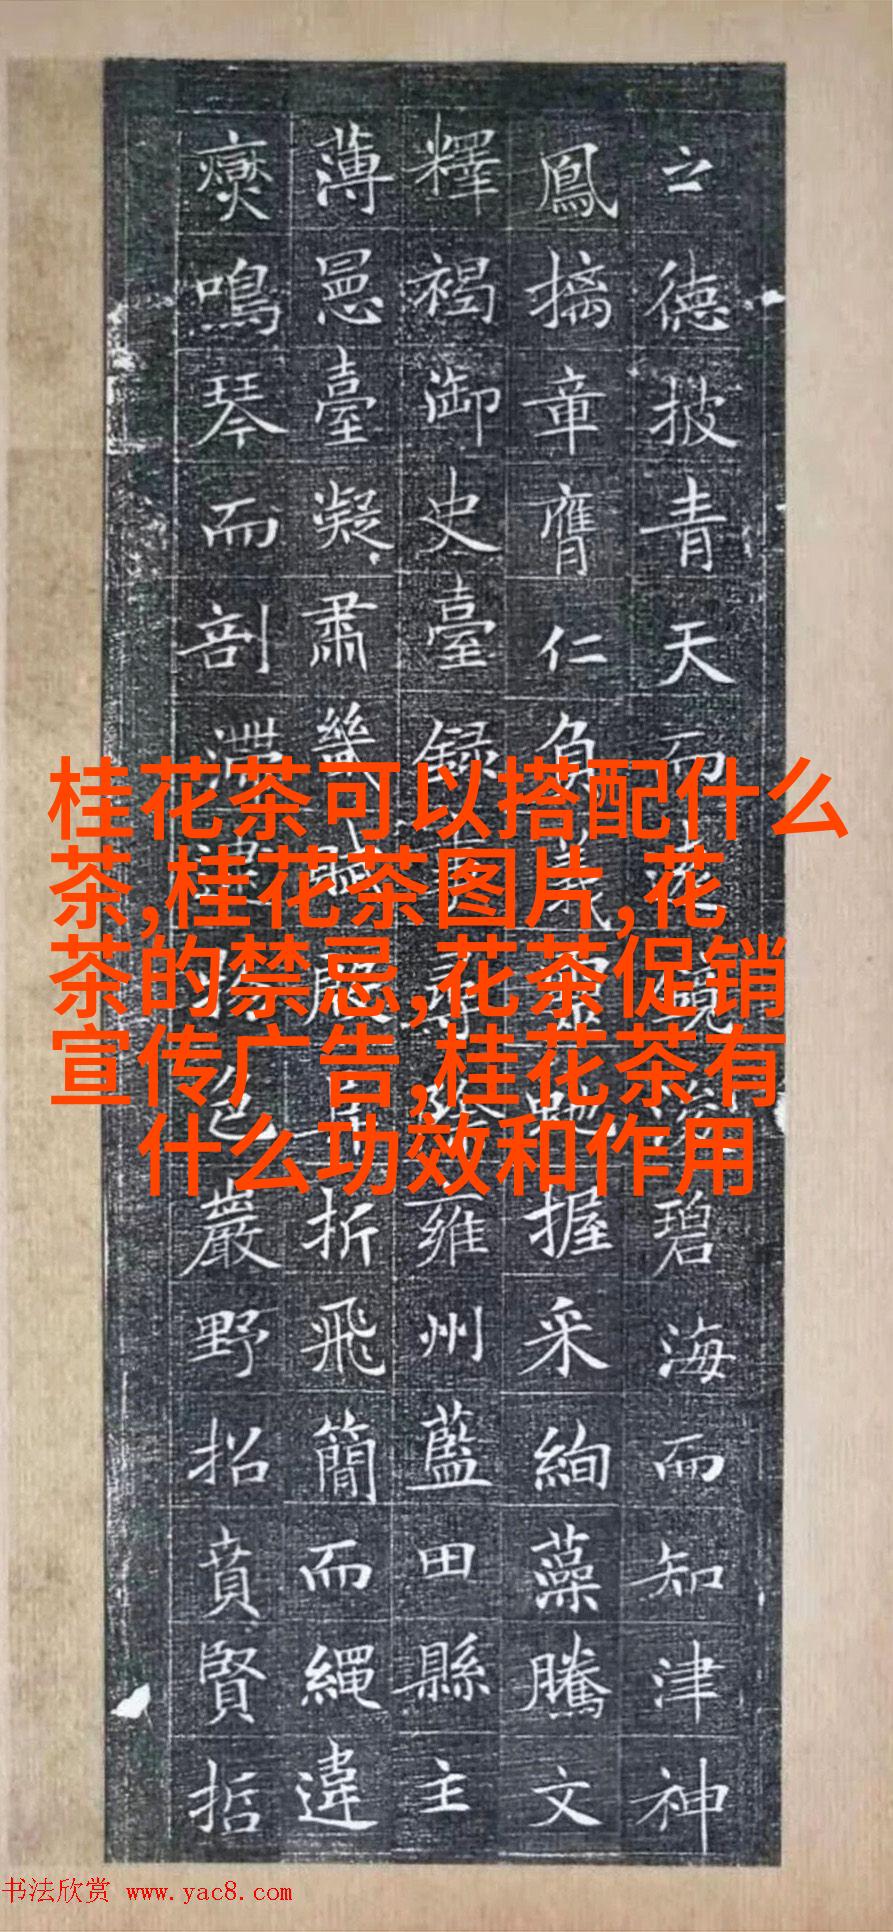 桂花茶可以搭配什么
茶,桂花茶图片,花
茶的禁忌,花茶促销
宣传广告,桂花茶有
什么功效和作用
之德披青天而碧海而知津神
鳳摛章膺仁負義握采絢藻騰文
釋褐御史臺録尋雍州藍田縣主
薄臺凝肅折飛簡而繩違
鳴琴而剖滯色巖野招賁賢哲
书法欣赏 www.yac8.com